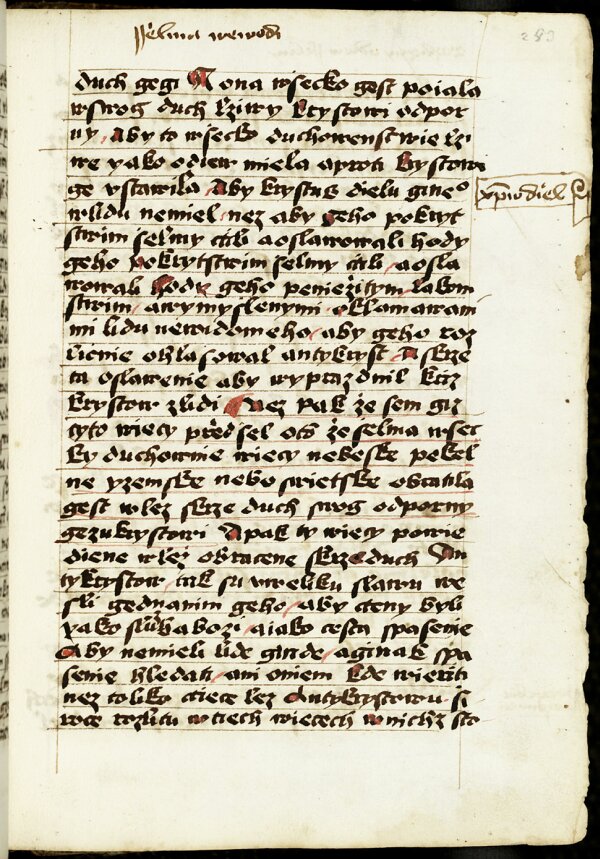 sselma wewodi
283
duch gegi A ona wsecko gest poiala
w swog duch lziwy krystowi odpor
ny, Aby to wsecko duchowenstwie lzi
we yako odiew miela aproti krystowi
ge vstawila Aby krystus dielu gineo
w lidu nemiel nez aby geho pokryt
stwim selmy ctili a oslawowali hody
geho pokrytstwim selmy ctili a osla
wowali hody geho peniezitym lakom
stwim, a wymyslenymi oklamawani
mi lidu newidomeho aby geho roz
licnie ohlasowal antykryst A skrze
ta oslawenie aby wyprazdnil krz
krystow z lidi Nez pak ze sem giz
tyto wiecy predsel ots ze selma wsec
ky duchownie wiecy nebeske pekel
ne y zemske nebo swietske obratila
gest w lez skrze duch swog odporny
gezukrystowi A pak ty wiecy powie
diene w lez obracene skrze duch An
tykrystow tak su w weliku slawu we
sli gednanim geho aby cteny byli
yako sluzba bozi a iako cesta spasenie
Aby nemieli lide ginde a ginak spa
senie hledati ani oniem kde wieriti
nez toliko ctiece lez Antykrystowu si
roce rozlitu w tiech wiecech w nichz sto